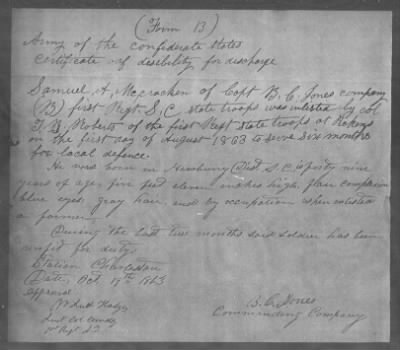 (Form B)
Army of the confederate states
certificate of disebility for discharge
Samuel A, Mccracken of Capt B. C. Jones company
(B) first Regt. S, C state troops was inlisted by col
T, B, Roberts of the first Regt state troops at
on the first day of August 1863 to serve six months
for local defence.
He was born in Newbury Dist S. C. is forty nine
years of age, five feet eleven inches high, complexion
blue eyes, gray hair, and by occupation when inlisted
a farmer
During the last two months said soldier has been
unfit for duty
Station Charleston
Date, Oct 19th 1863
B. C. Jones
Commanding Company
Lieut Col
1st Regt S.T.